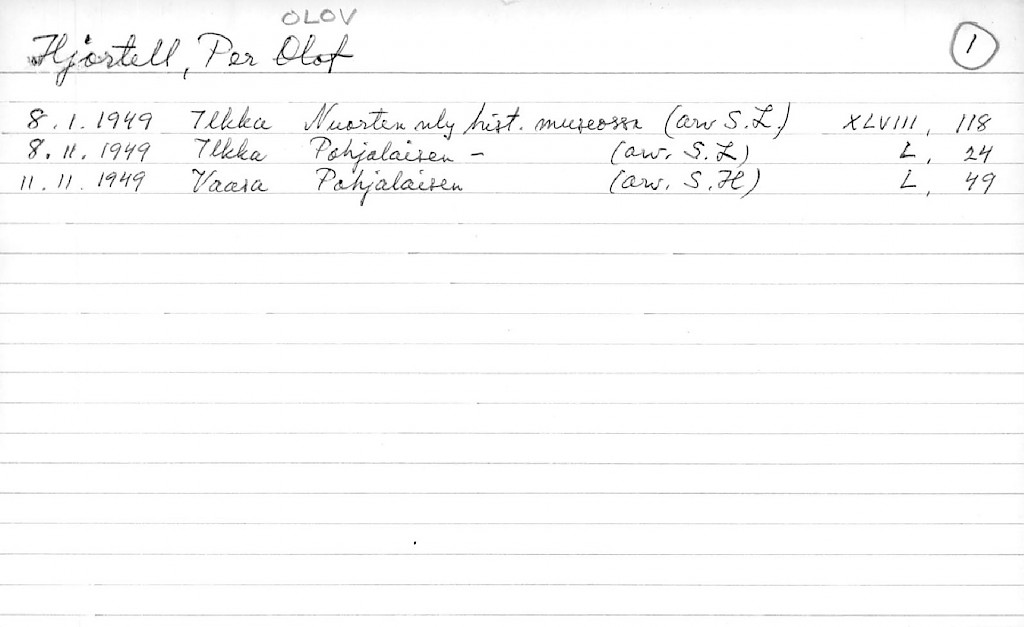 OLOV
Hjortell, Per Olof 1
8.1.1949 Ilkka Nuorten nly hist. museossa (arv S.L.) XLVIII, 118
8.11.1949 Ilkka Pohjalaisen – (arv. S.L) L, 24
11.11.1949 Vaasa Pohjalaisen (arv. S.H) L, 49